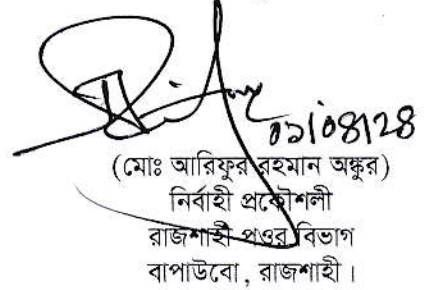 ০১/০৪/২৪
(মোঃ আরিফুর রহমান অঙ্কুর)
নির্বাহী প্রকৌশলী
রাজশাহী পওর বিভাগ
বাপাউবো, রাজশাহী।